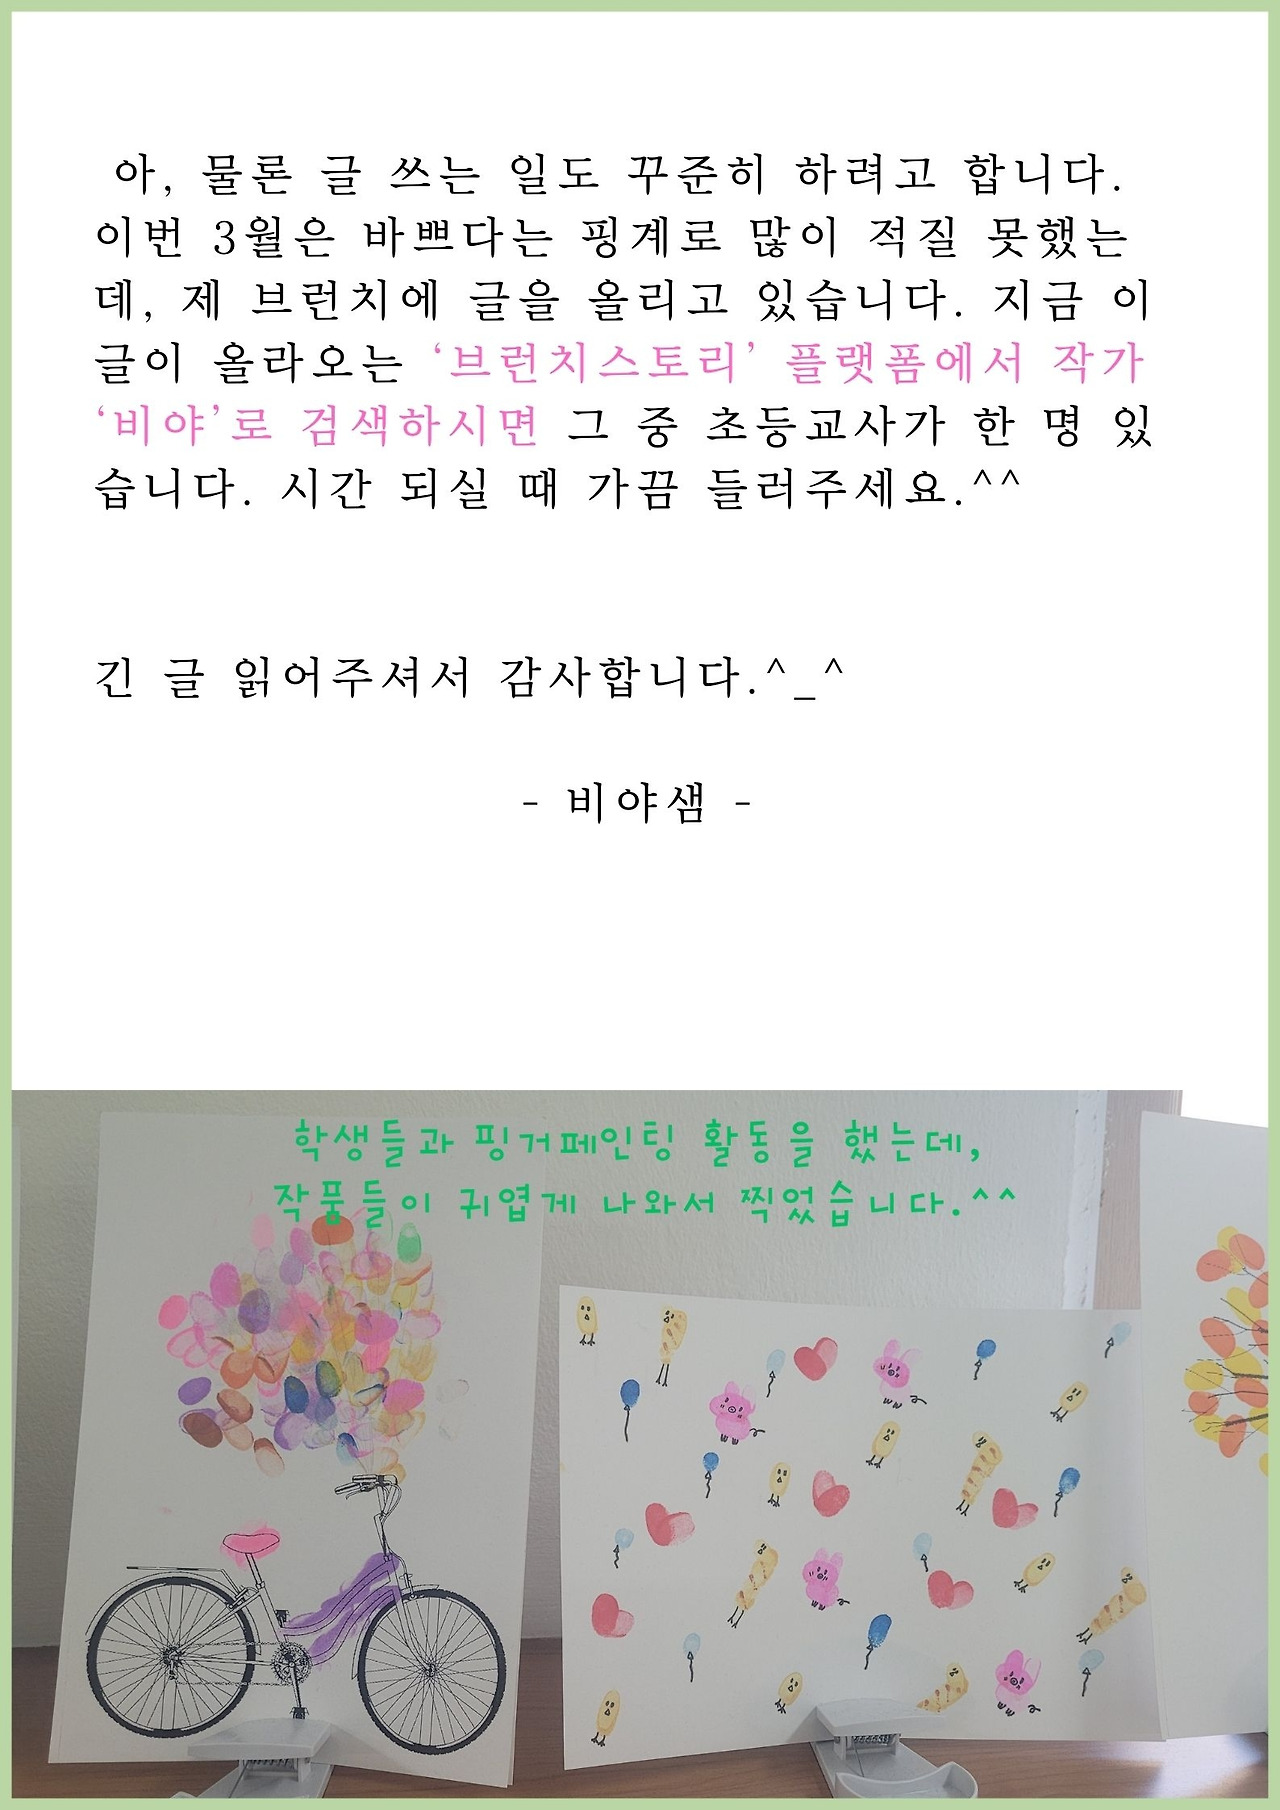 아, 물론 글 쓰는 일도 꾸준히 하려고 합니다.
이번 3월은 바쁘다는 핑계로 많이 적질 못했는
데, 제 브런치에 글을 올리고 있습니다. 지금 이
글이 올라오는 ‘브런치스토리’ 플랫폼에서 작가
‘비야’로 검색하시면 그 중 초등교사가 한 명 있
습니다. 시간 되실 때 가끔 들러주세요.^^
긴 글 읽어주셔서 감사합니다.^_^
- 비야샘 -
학생들과 핑거페인팅 활동을 했는데,
작품들이 귀엽게 나와서 찍었습니다.^^